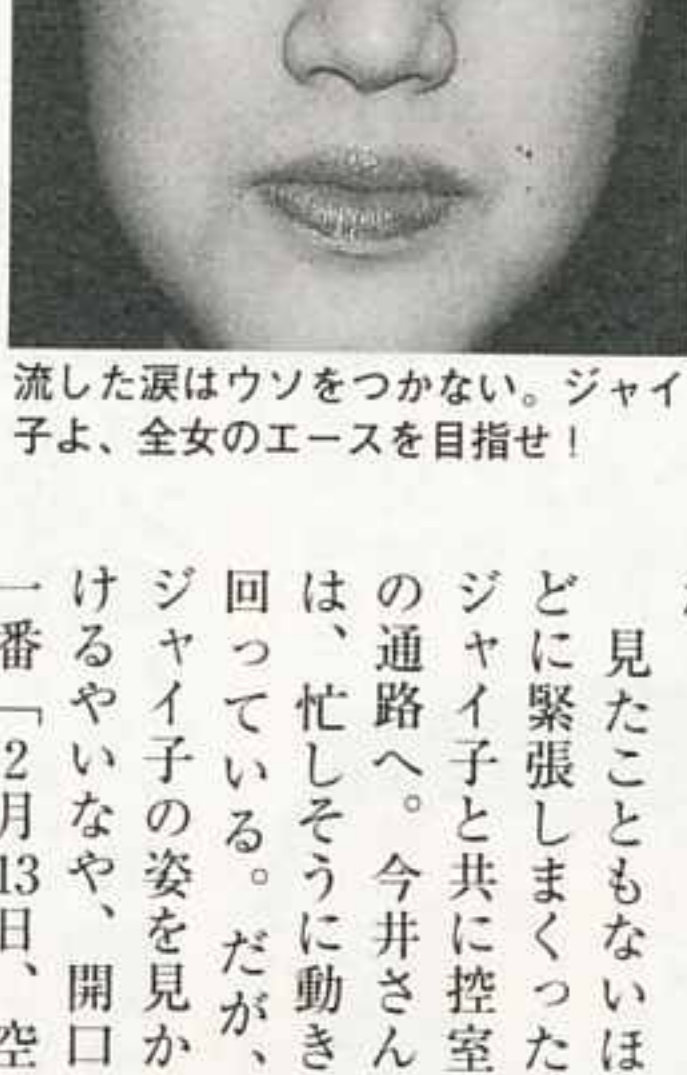 流した涙はウソをつかない。ジャイ
子よ、全女のエースを目指せ！
見たこともないほ
どに緊張しまくった
ジャイ子と共に控室
の通路へ。今井さん
は、忙しそうに動き
回っている。だが、
ジャイ子の姿を見か
けるやいなや、開口
一番「2月13日、空